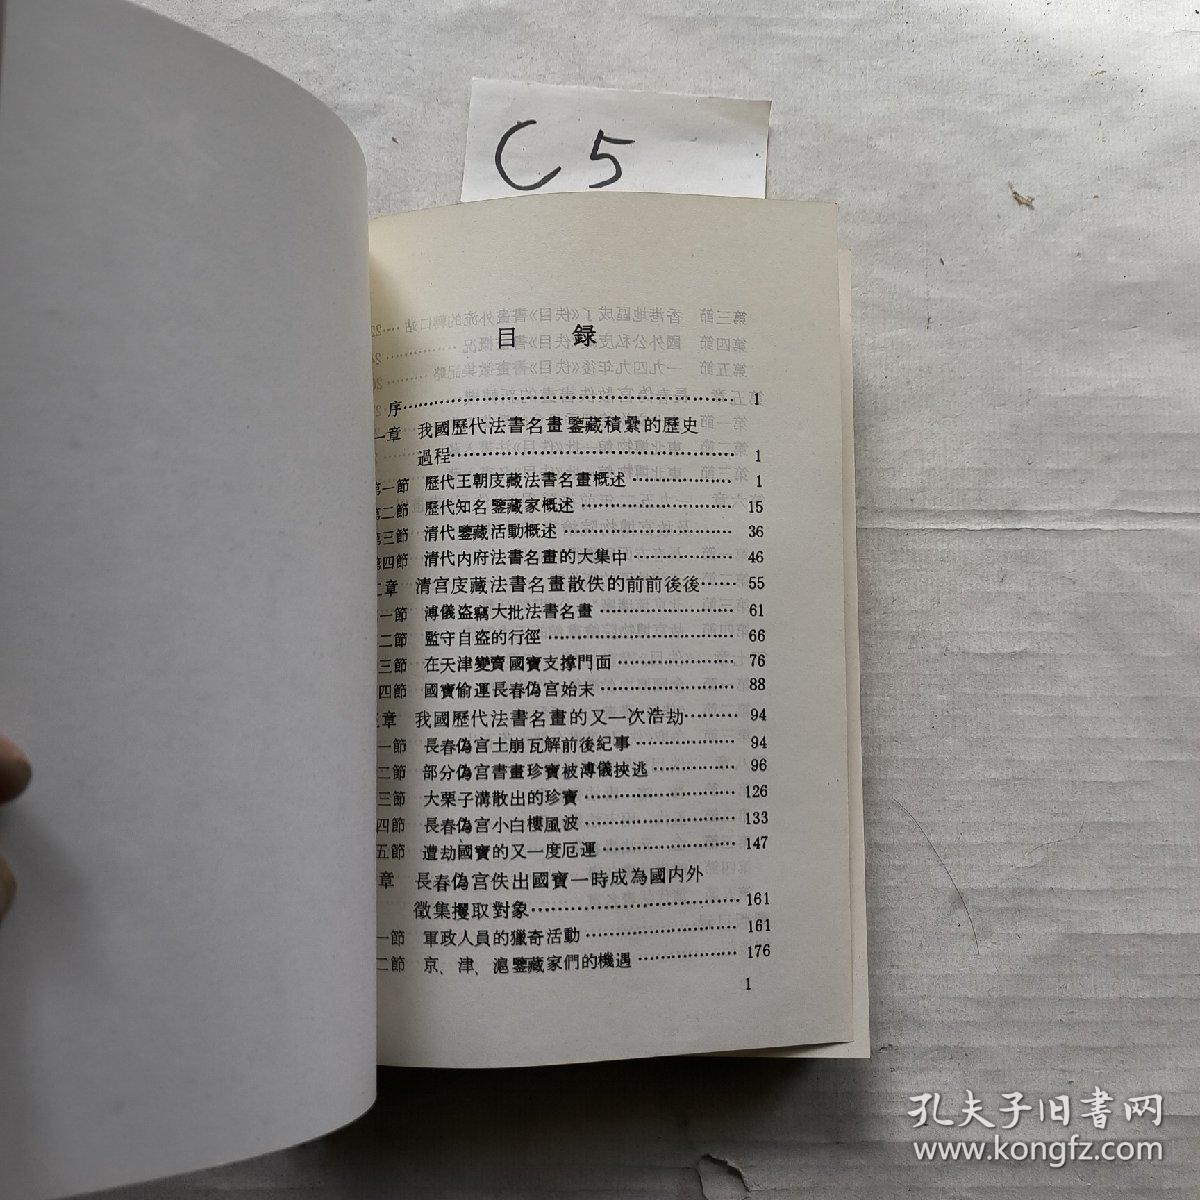 C5
目 録
序……1
一章 我國歷代法書名畫鑒藏積纍的歷史
過程……1
第一節 歷代王朝庋藏法書名畫概述……1
第二節 歷代知名鑒藏家概述……15
第三節 清代鑒藏活動概述……36
第四節 清代内府法書名畫的大集中……46
二章 清宫庋藏法書名畫散佚的前前後後……55
一節 溥儀盗竊大批法書名畫……61
二節 監守自盗的行徑……66
三節 在天津變賣國寶支撑門面……76
四節 國寶偷運長春偽宫始末……88
三章 我國歷代法書名畫的又一次浩劫……94
一節 長春偽宫土崩瓦解前後紀事……94
二節 部分偽宫書畫珍寶被溥儀挾逃……96
三節 大栗子溝散出的珍寶……126
四節 長春偽宫小白樓風波……133
五節 遭劫國寶的又一度厄運……147
章 長春偽宫佚出國寶一時成為國内外
徵集攫取對象……161
一節 軍政人員的獵奇活動……161
二節 京、津、滬鑒藏家們的機遇……176
1
孔夫子旧書网
www.kongfz.com